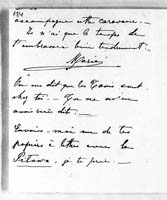 accompagne cette caravane.
Je n'ai que le temps de
t'embrasser bien tendrement.
Marie
On me dit que les Tavis sont
chez toi. — Tu ne m'en
avais rien dit.
Envoie-moi un de tes
papiers à lettres avec la
, je te prie. —